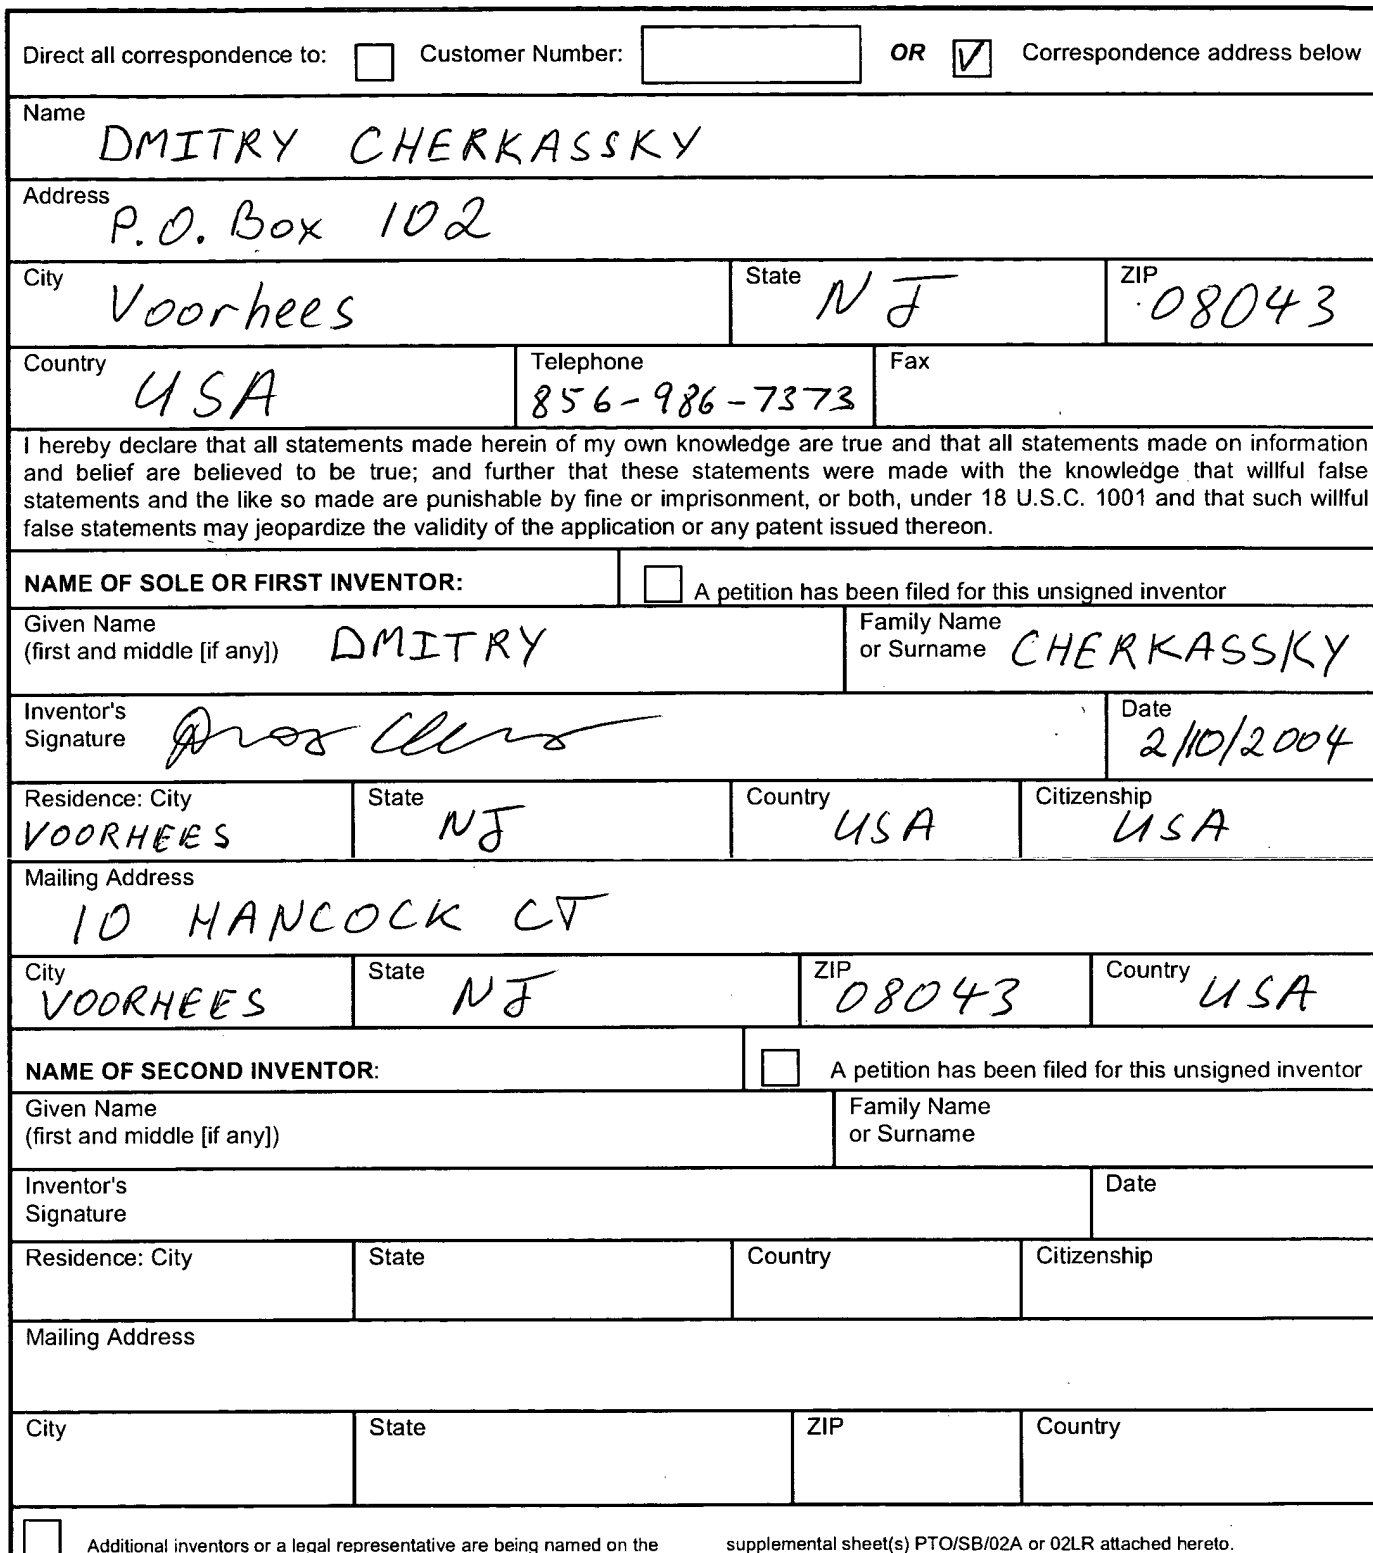 Direct all correspondence to: Customer Number: OR Correspondence address below
Name
DMITRY CHERKASSKY
Address
P.O. Box 102
City State ZIP
Voorhees NJ 08043
Country Telephone Fax
USA 856-986-7373
I hereby declare that all statements made herein of my own knowledge are true and that all statements made on information
and belief are believed to be true; and further that these statements were made with the knowledge that willful false
statements and the like so made are punishable by fine or imprisonment, or both, under 18 U.S.C. 1001 and that such willful
false statements may jeopardize the validity of the application or any patent issued thereon.
NAME OF SOLE OR FIRST INVENTOR: A petition has been filed for this unsigned inventor
Given Name
(first and middle [if any]) DMITRY
Family Name
or Surname CHERKASSKY
Inventor's
Signature
Date
2/10/2004
Residence: City State Country Citizenship
VOORHEES NJ USA USA
Mailing Address
10 HANCOCK CT
City State ZIP Country
VOORHEES NJ 08043 USA
NAME OF SECOND INVENTOR: A petition has been filed for this unsigned inventor
Given Name
(first and middle [if any])
Family Name
or Surname
Inventor's
Signature
Date
Residence: City State Country Citizenship
Mailing Address
City State ZIP Country
Additional inventors or a legal representative are being named on the supplemental sheet(s) PTO/SB/02A or 02LR attached hereto.